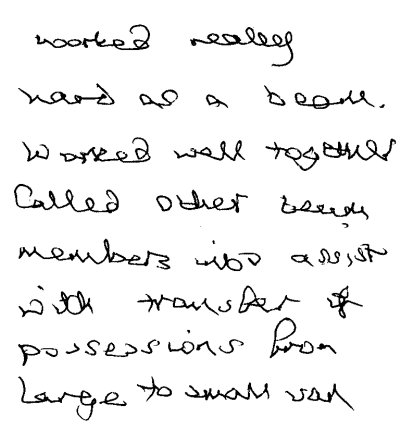 worked really
hard as a team.
Worked well together
Called other team
members into assist
with transfer of
possessions from
large to small van